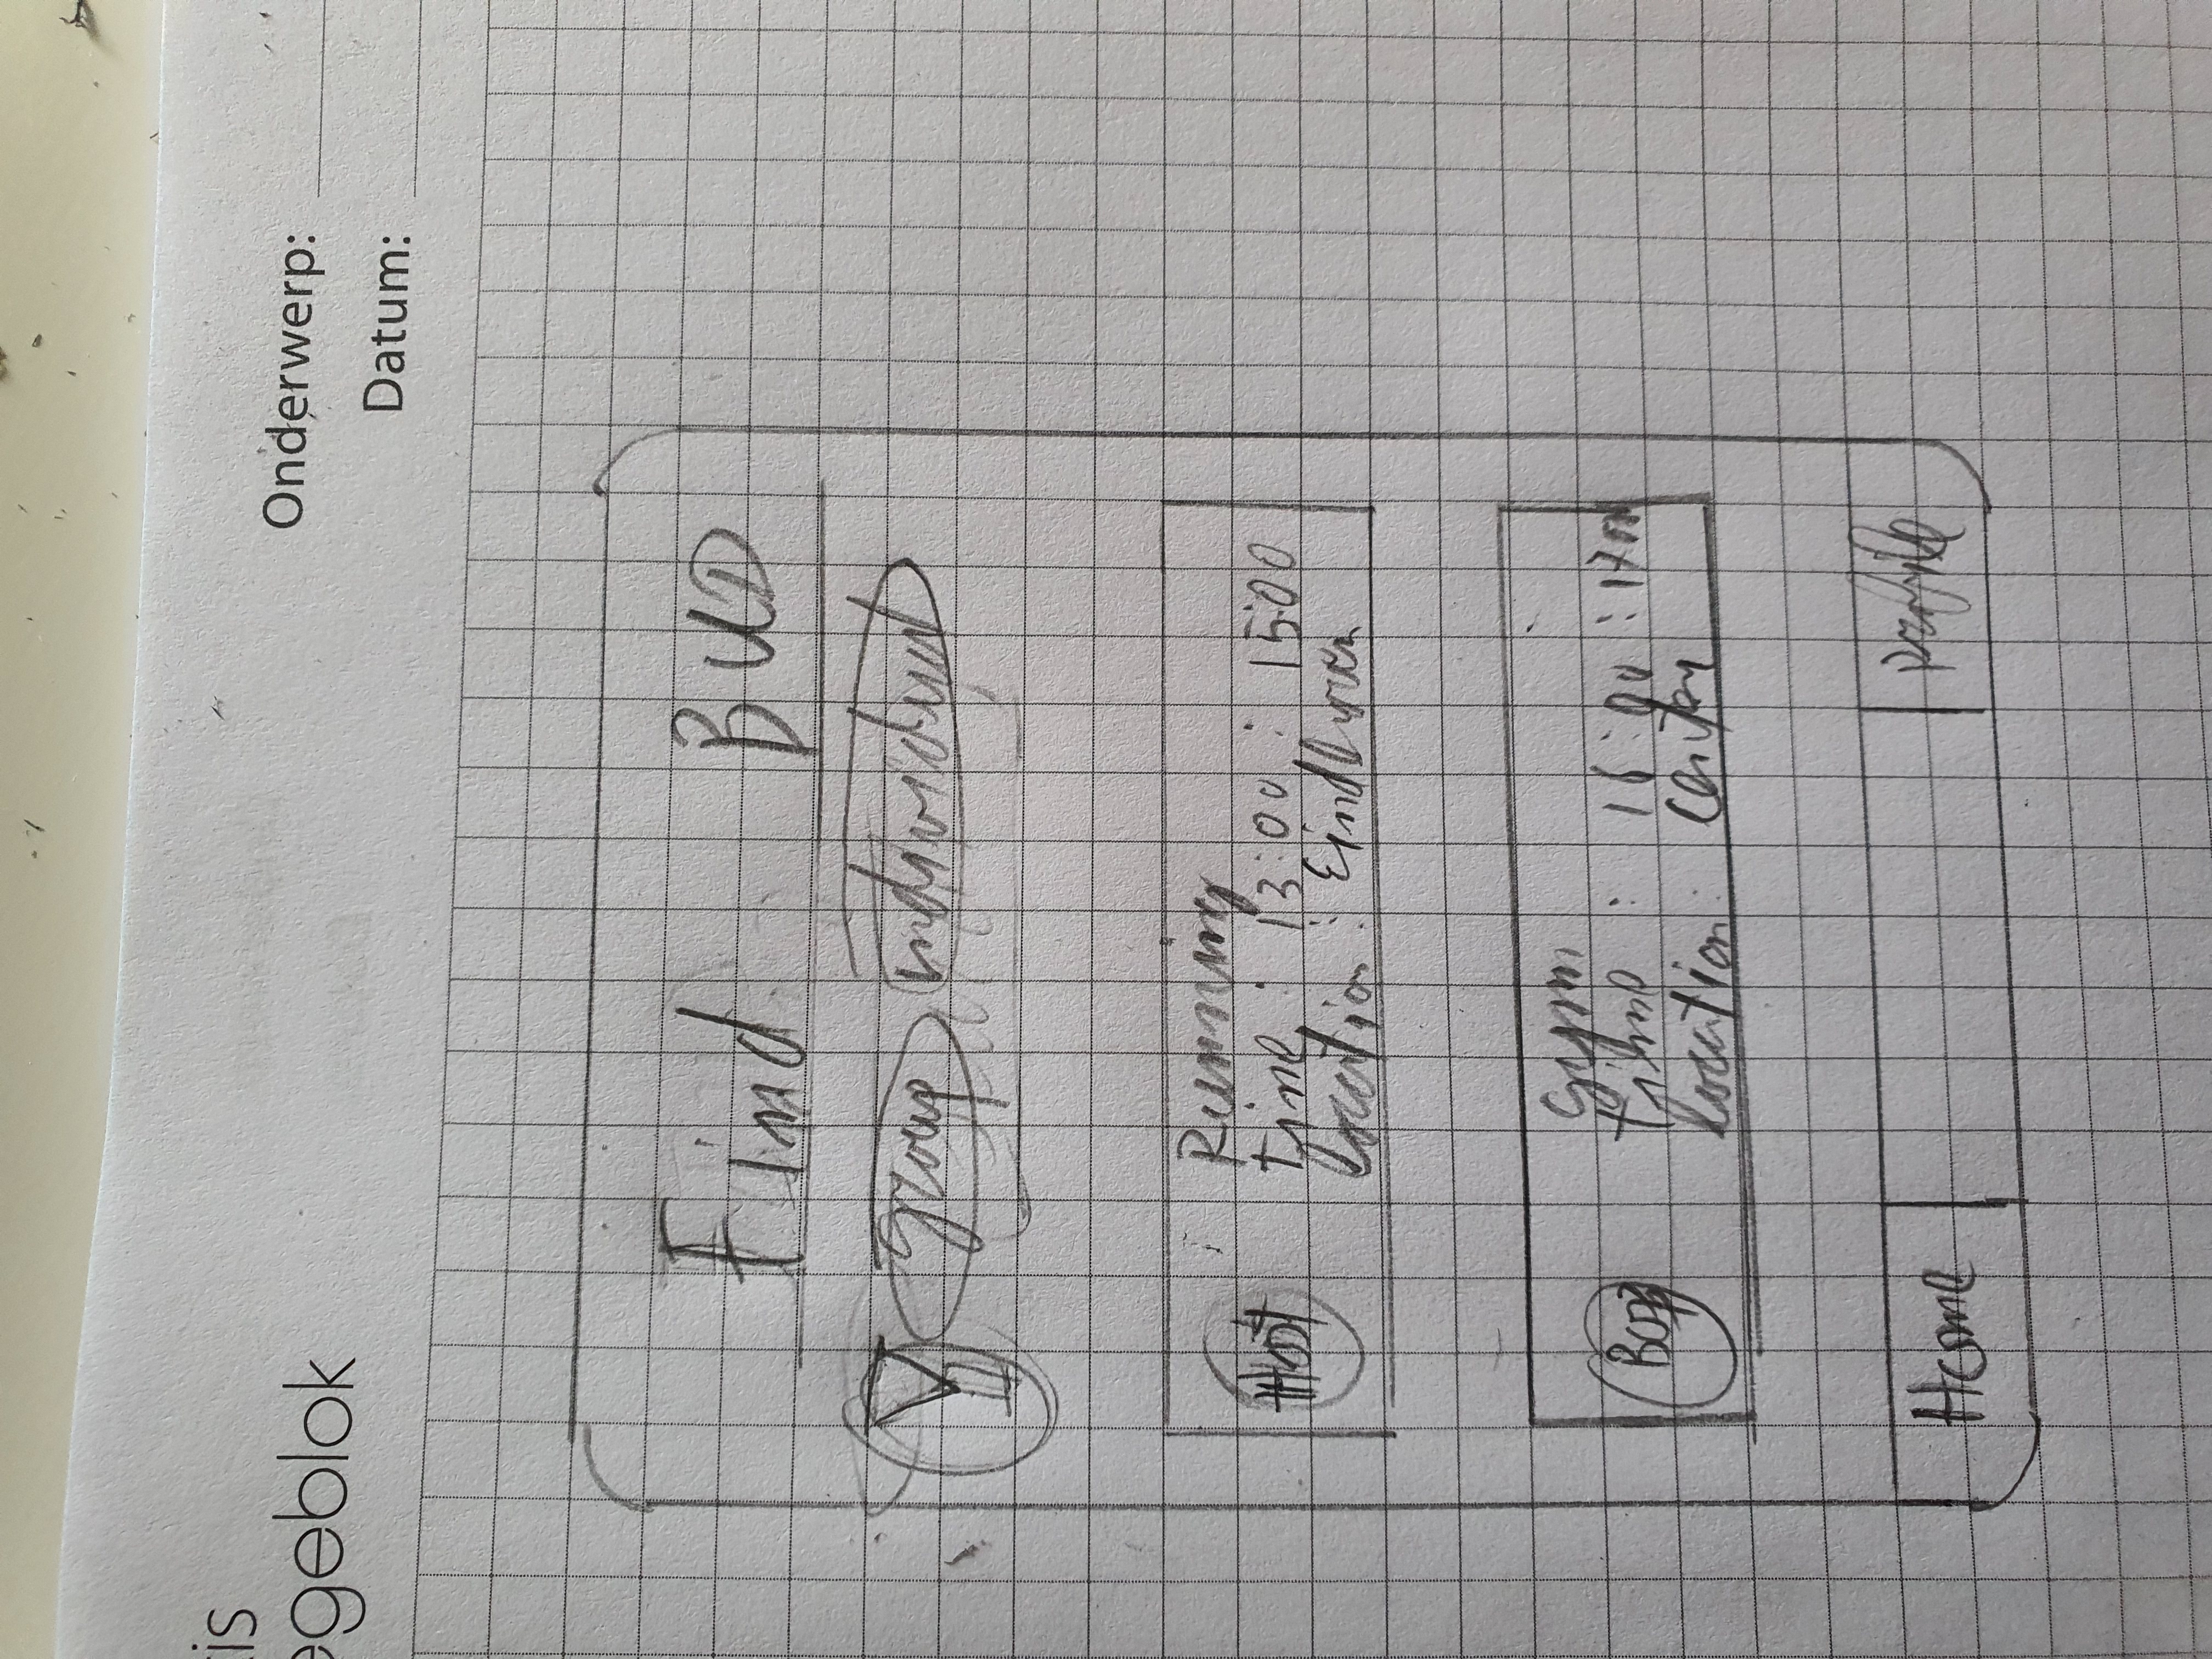 tis
egeblok
Onderwerp:
Datum:
Find BUD
group individual
Host
Running
time : 13:00 : 15:00
location : Eindhoven
gym
time : 16:00 : 1700
location : Center
Home
Profile